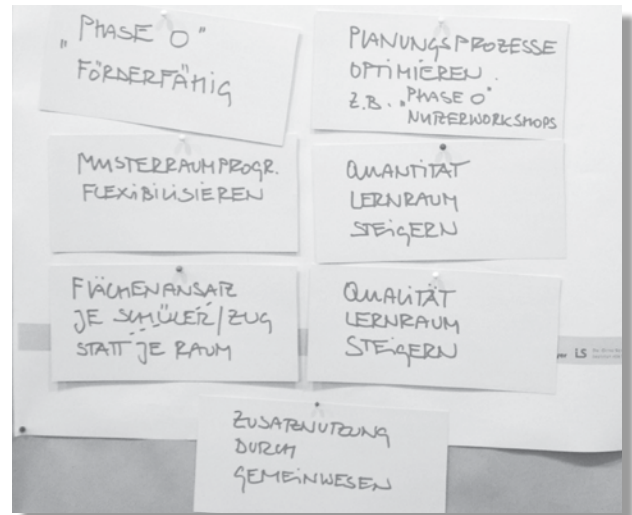 „PHASE O“
FÖRDERFÄHIG
PLANUNGSPROZESSE
OPTIMIEREN.
Z.B. „PHASE O“
NUTZERWORKSHOPS
MUSTERRAUMPROGR.
FLEXIBILISIEREN
QUANTITÄT
LERNRAUM
STEIGERN
FLÄCHENANSATZ
JE SCHÜLER/ZUG
STATT JE RAUM
QUALITÄT
LERNRAUM
STEIGERN
LS
ZUSATZNUTZUNG
DURCH
GEMEINWESEN